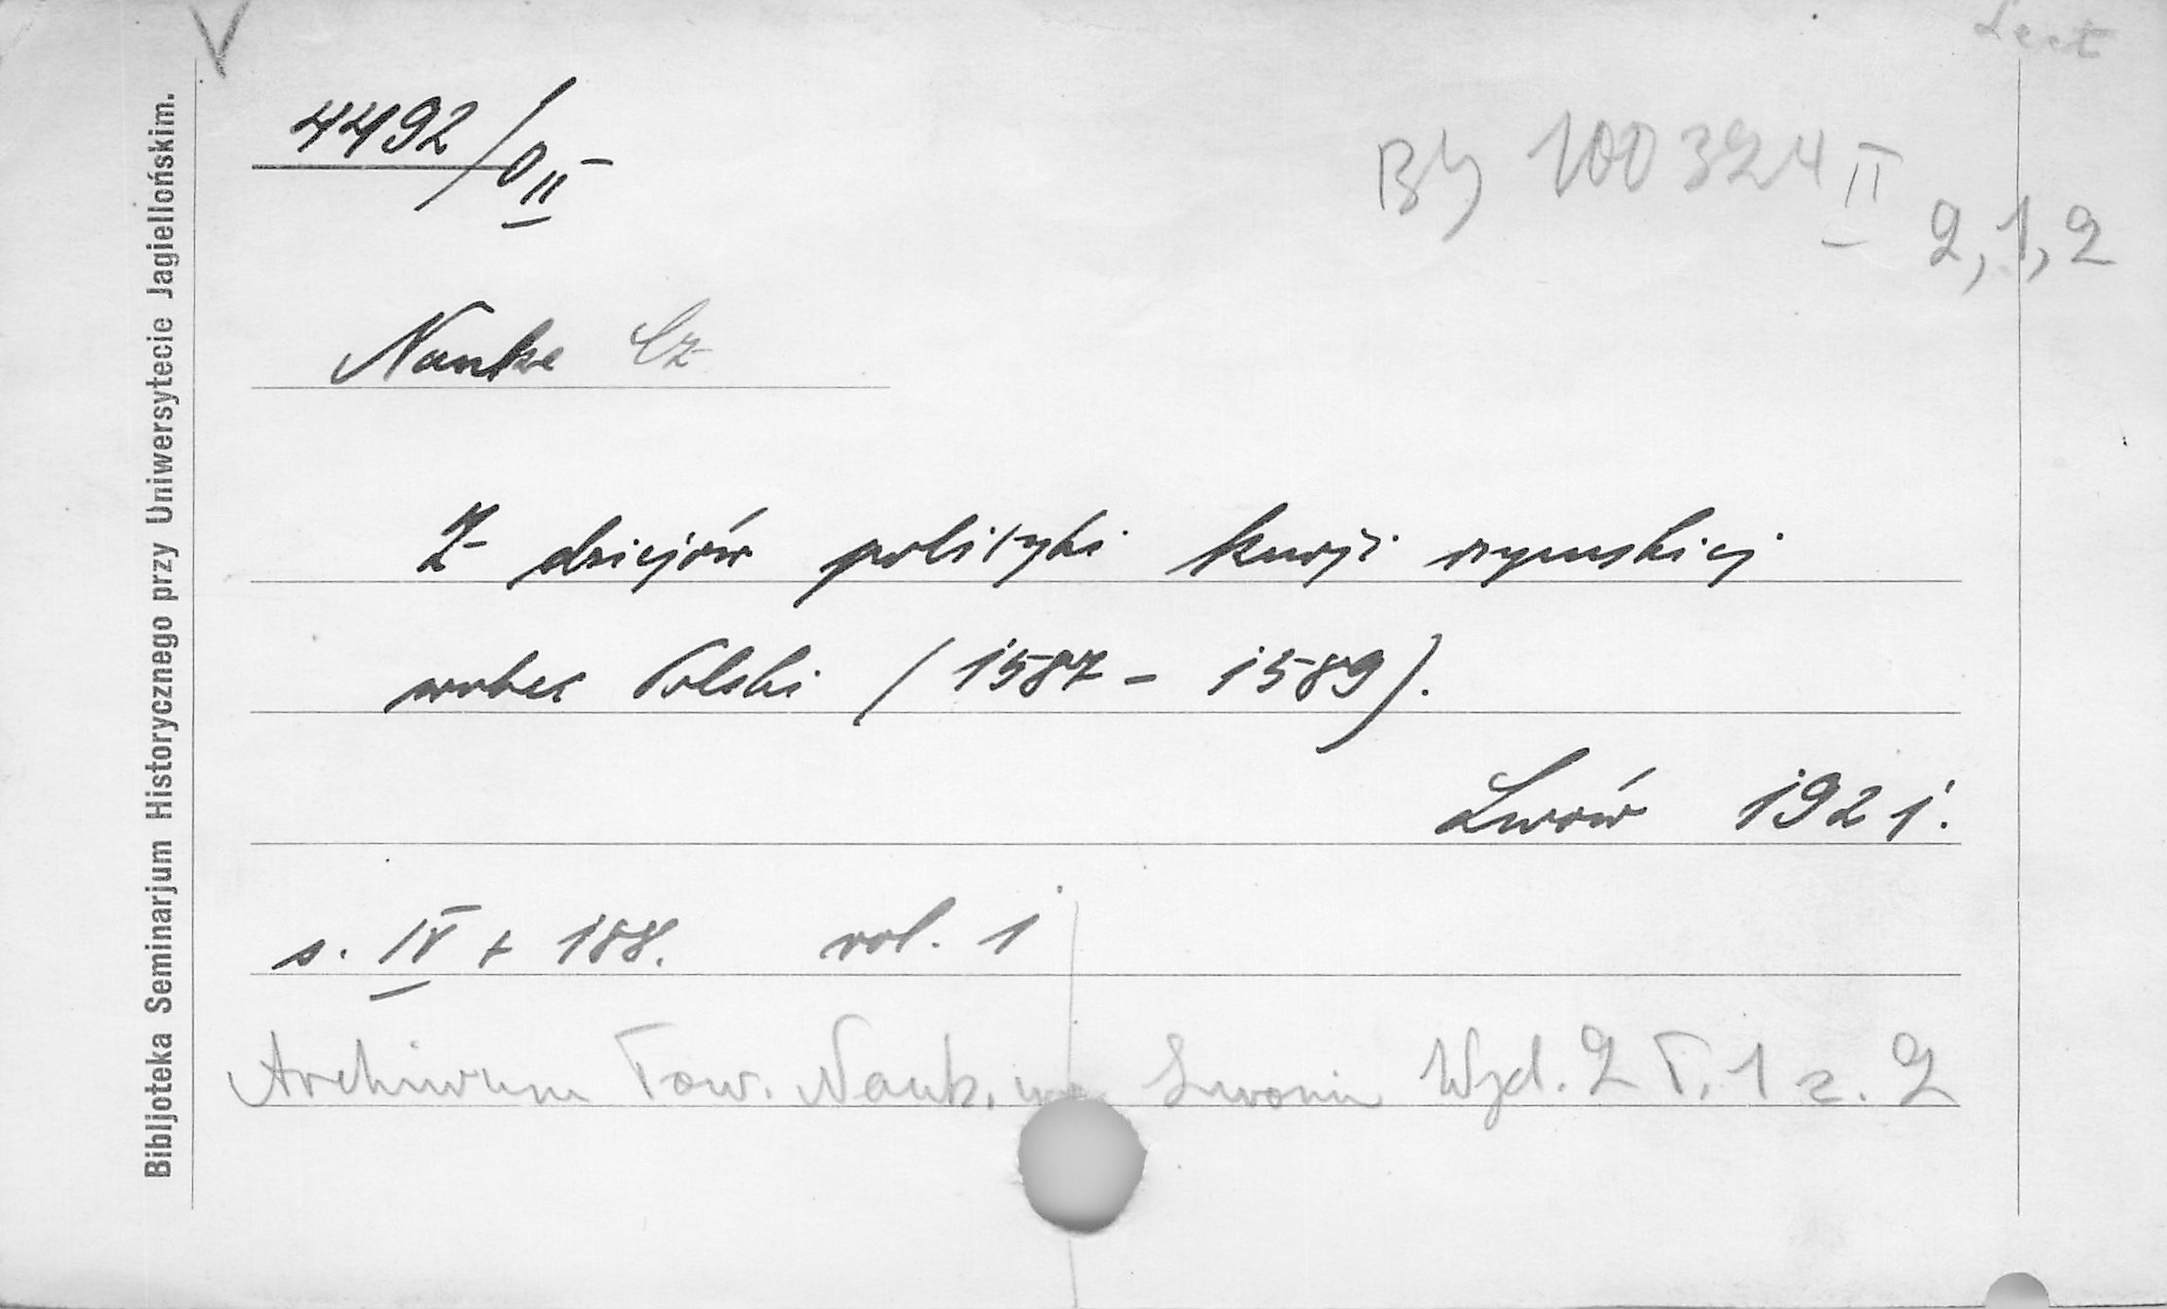 Lect
4492/0 II
BJ 100324 II 2,1,2
Nanke Cz
Z dziejów polityki kurji rzymskiej
wobec Polski (1587 - 1589).
Lwów 1921.
s. IV + 188. vol. 1
Archiwum Tow. Nauk. we Lwowie Wyd. 2 T. 1 z. 2
Bibljoteka Seminarjum Historycznego przy Uniwersytecie Jagiellońskim.